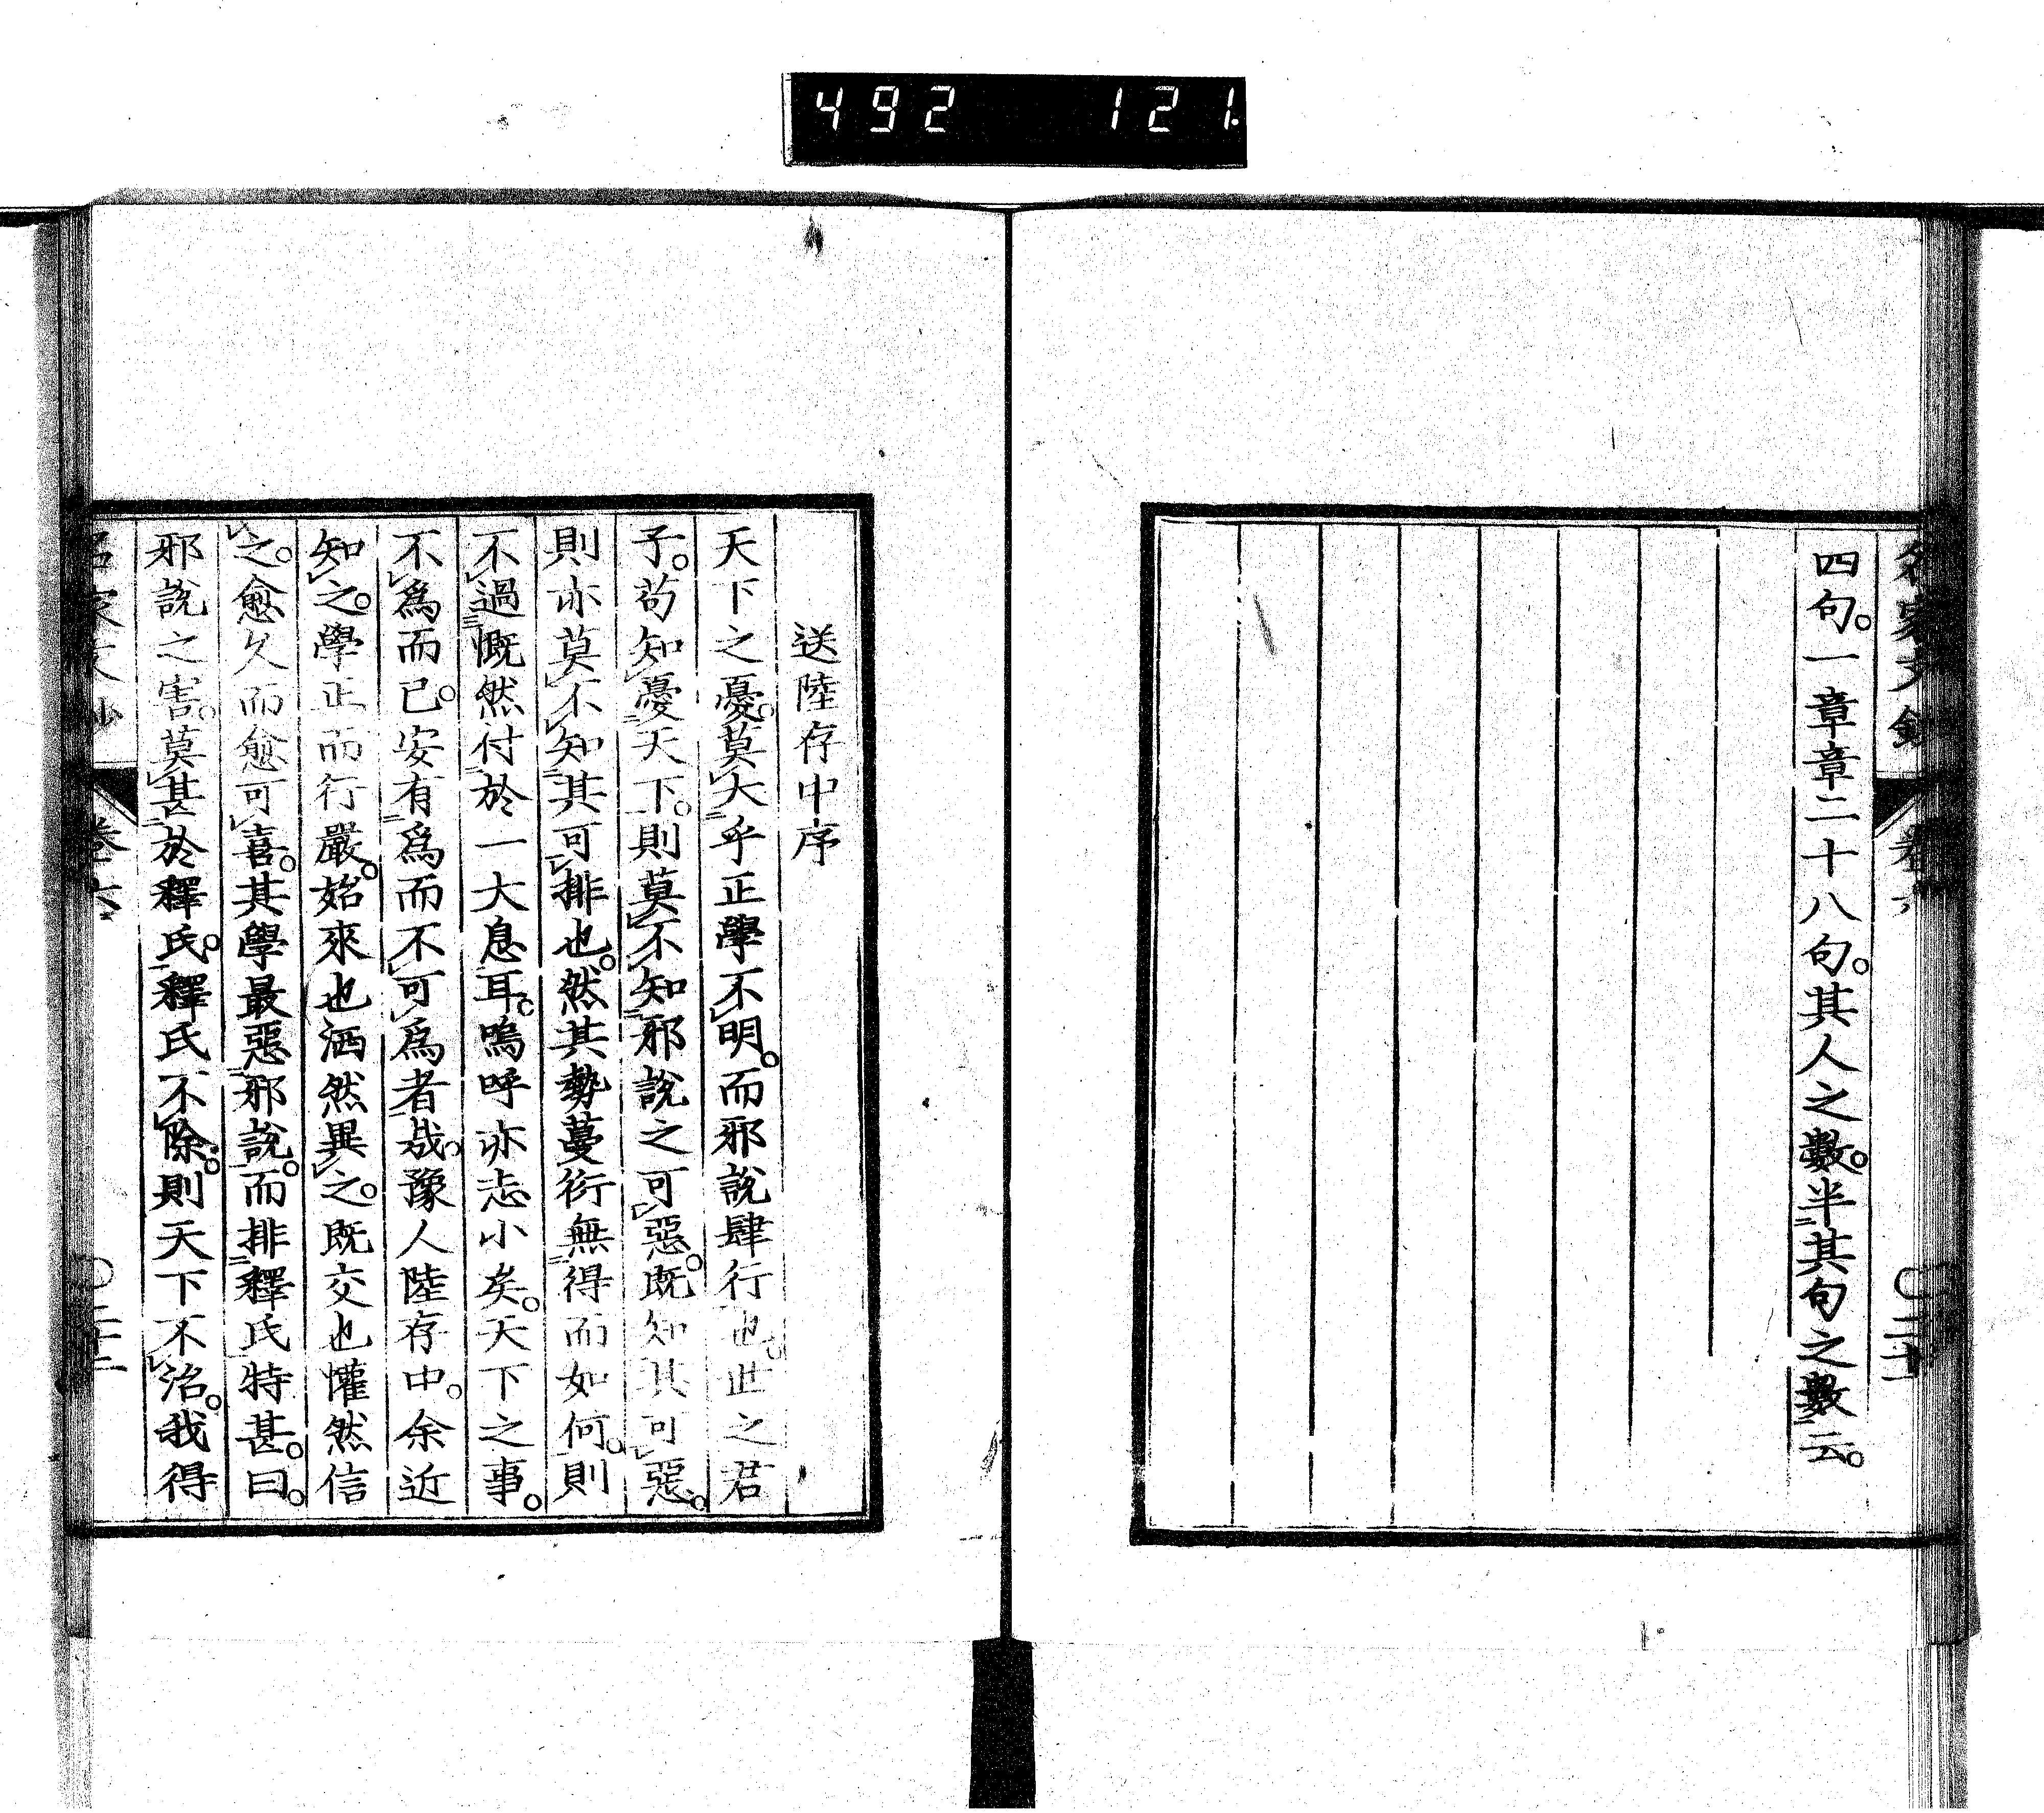 492 121.
名家文鈔 卷六 〇二十一
四句。一章章二十八句。其人之數。半其句之數云。
送陸存中序
天下之憂。莫大乎正學不明。而邪說肆行也。世之君
子。苟知憂天下。則莫不知邪說之可惡。既知其可惡。
則亦莫不知其可排也。然其勢蔓衍無得而如何。則
不過慨然付於一大息耳。嗚呼亦志小矣。天下之事。
不為而已。安有為而不可為者哉。豫人陸存中。余近
知之。學正而行嚴。始來也洒然異之。既交也懽然信
之。愈久而愈可喜。其學最惡邪說。而排釋氏特甚。曰。
邪說之害。莫甚於釋氏。釋氏不除。則天下不治。我得
名家文鈔 卷六 〇二十二